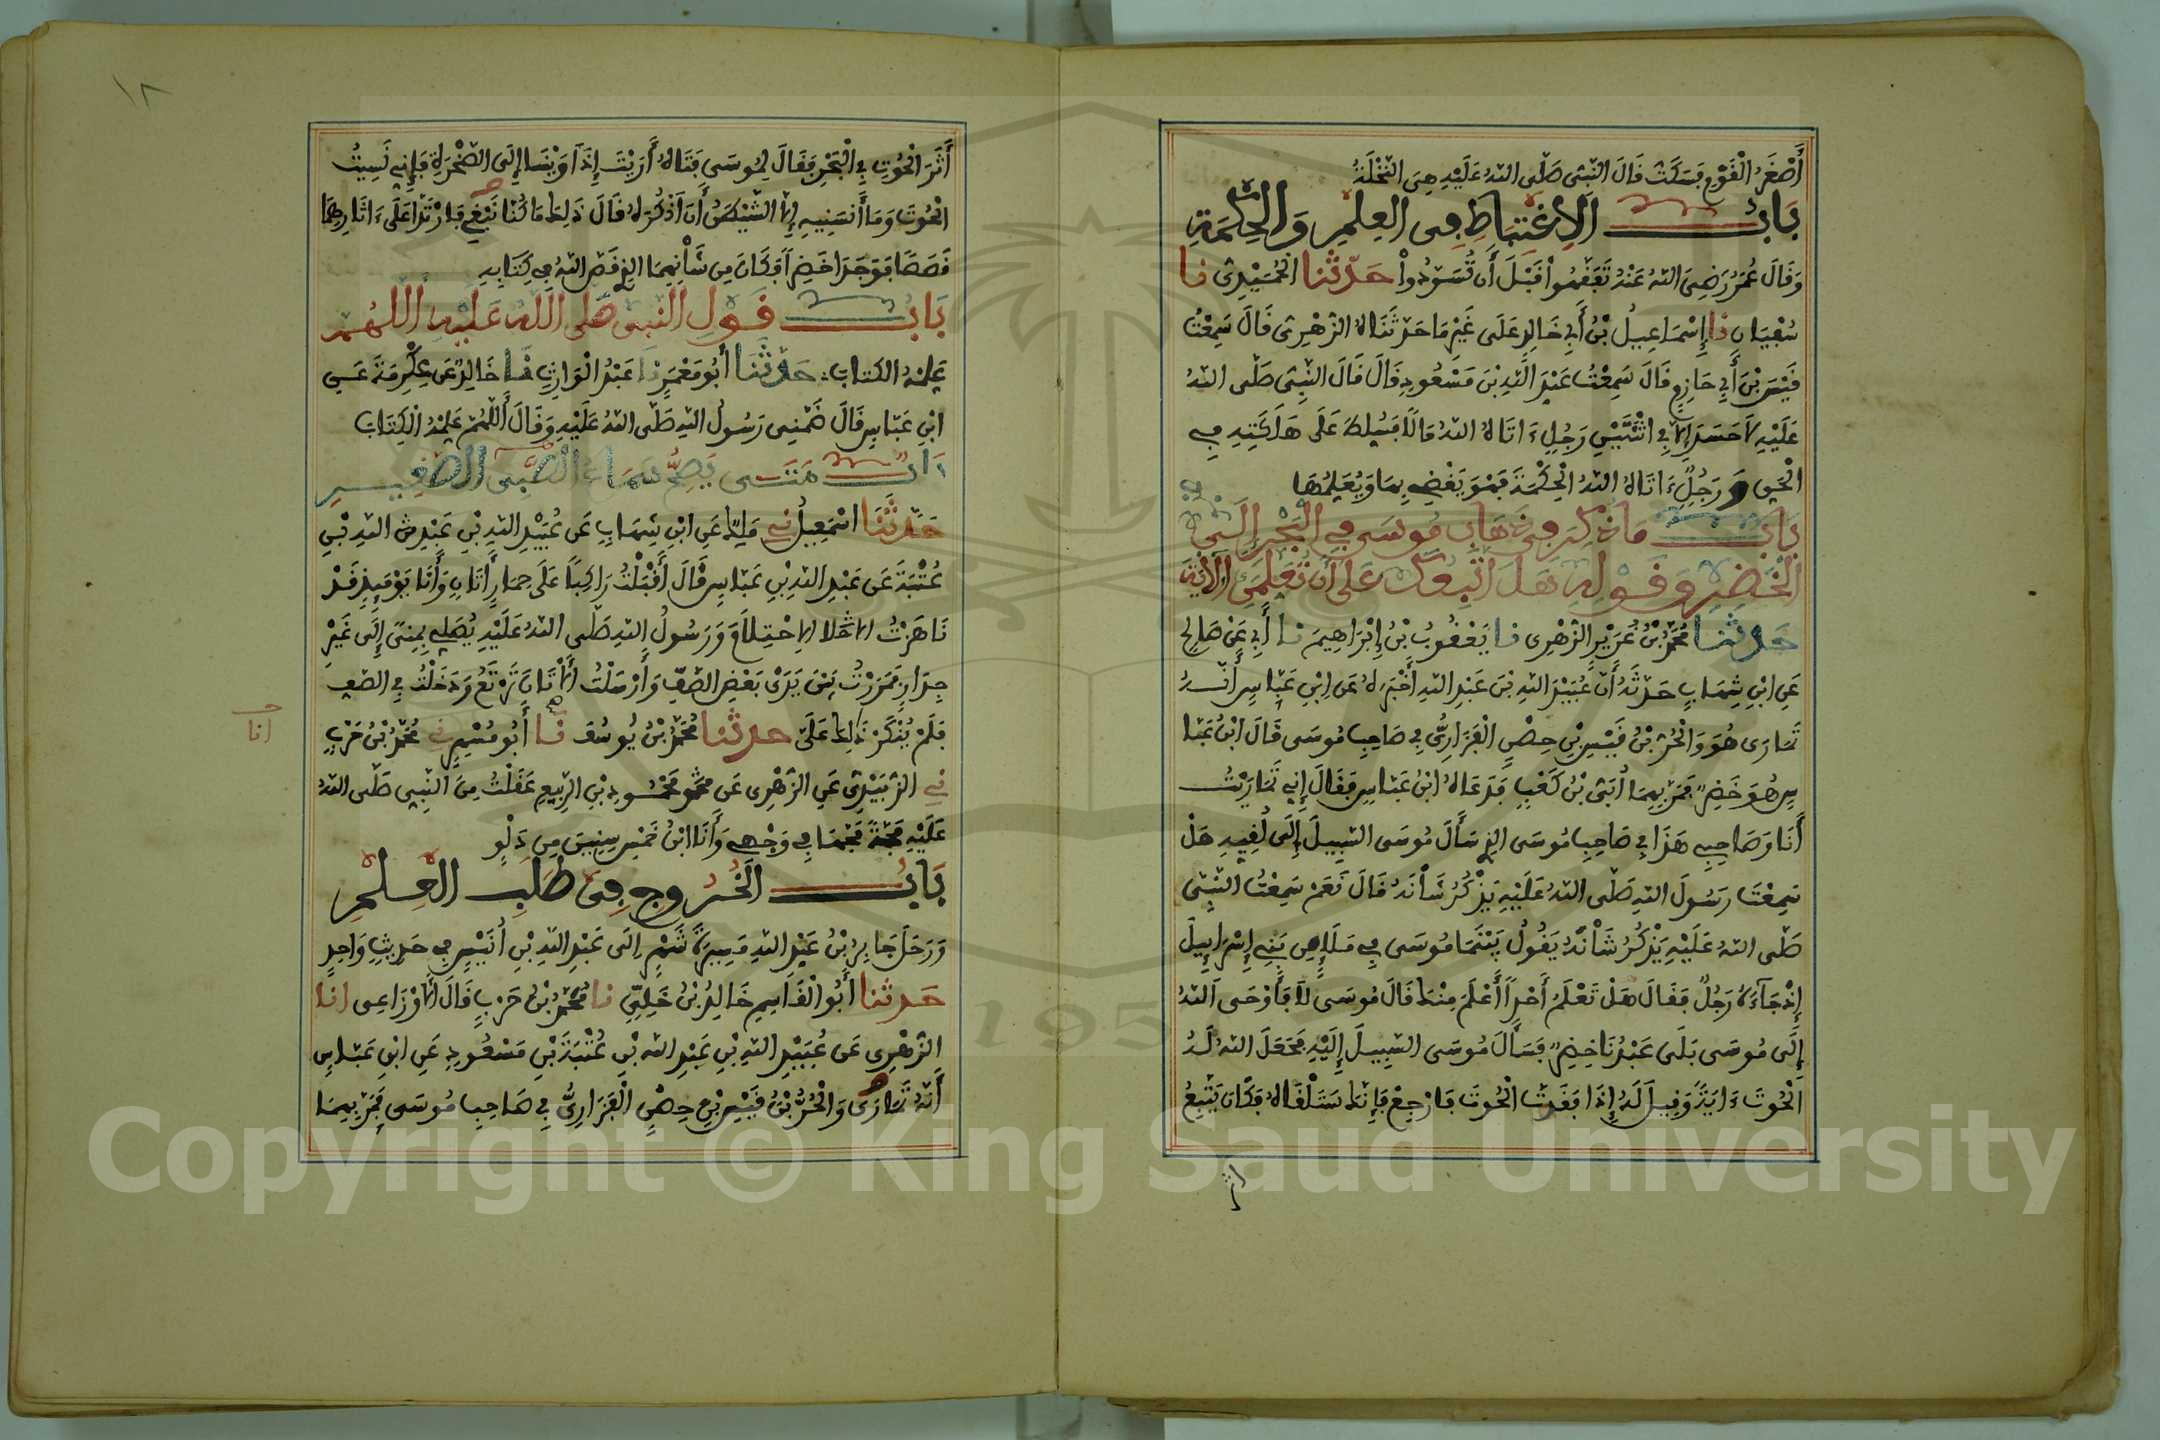 أَصْغَرُ الْقَوْمِ فَسَكَتُّ قَالَ النَّبِيُّ صَلَّى اللَّهُ عَلَيْهِ هِيَ النَّخْلَةُ
بَابُ الِاغْتِبَاطِ فِي الْعِلْمِ وَالْحِكْمَةِ
وَقَالَ عُمَرُ رَضِيَ اللَّهُ عَنْهُ تَفَقَّهُوا قَبْلَ أَن تُسَوَّدُواْ حَدَّثَنَا الْحُمَيْدِيُّ نا
سُفْيَانُ نا إِسْمَاعِيلُ بْنُ أَبِي خَالِدٍ عَلَى غَيْرِ مَا حَدَّثَنَاهُ الزُّهْرِيُّ قَالَ سَمِعْتُ
قَيْسَ بْنَ أَبِي حَازِمٍ قَالَ سَمِعْتُ عَبْدَ اللَّهِ بْنَ مَسْعُودٍ قَالَ قَالَ النَّبِيُّ صَلَّى اللَّهُ
عَلَيْهِ لَا حَسَدَ إِلَّا فِي اثْنَتَيْنِ رَجُلٍ ءَاتَاهُ اللَّهُ مَالًا فَسُلِّطَ عَلَى هَلَكَتِهِ فِي
الْحَقِّ وَرَجُلٍ ءَاتَاهُ اللَّهُ الْحِكْمَةَ فَهُوَ يَقْضِي بِهَا وَيُعَلِّمُهَا
بَابُ مَا ذُكِرَ فِي ذَهَابِ مُوسَى فِي الْبَحْرِ إِلَى
الْخَضِرِ وَقَوْلِهِ هَلْ أَتَّبِعُكَ عَلَى أَن تُعَلِّمَنِ الْآيَةَ
حَدَّثَنَا مُحَمَّدُ بْنُ غُرَيْرٍ الزُّهْرِيُّ نا يَعْقُوبُ بْنُ إِبْرَاهِيمَ نا أَبِي عَنْ صَالِحٍ
عَنِ ابْنِ شِهَابٍ حَدَّثَهُ أَنَّ عُبَيْدَ اللَّهِ بْنَ عَبْدِ اللَّهِ أَخْبَرَهُ عَنِ ابْنِ عَبَّاسٍ أَنَّهُ
تَمَارَى هُوَ وَالْحُرُّ بْنُ قَيْسِ بْنِ حِصْنٍ الْفَزَارِيُّ فِي صَاحِبِ مُوسَى قَالَ ابْنُ عَبَّا
سٍ هُوَ خَضِرٌ فَمَرَّ بِهِمَا أُبَيُّ بْنُ كَعْبٍ فَدَعَاهُ ابْنُ عَبَّاسٍ فَقَالَ إِنِّي تَمَارَيْتُ
أَنَا وَصَاحِبِي هَذَا فِي صَاحِبِ مُوسَى الَّذِي سَأَلَ مُوسَى السَّبِيلَ إِلَى لُقِيِّهِ هَلْ
سَمِعْتَ رَسُولَ اللَّهِ صَلَّى اللَّهُ عَلَيْهِ يَذْكُرُ شَأْنَهُ قَالَ نَعَمْ سَمِعْتُ النَّبِيَّ
صَلَّى اللَّهُ عَلَيْهِ يَذْكُرُ شَأْنَهُ يَقُولُ بَيْنَمَا مُوسَى فِي مَلَإٍ مِن بَنِي إِسْرَاءِيلَ
إِذْ جَاءَهُ رَجُلٌ فَقَالَ هَلْ تَعْلَمُ أَحَدًا أَعْلَمَ مِنْكَ قَالَ مُوسَى لَا فَأَوْحَى اللَّهُ
إِلَى مُوسَى بَلَى عَبْدُنَا خَضِرٌ فَسَأَلَ مُوسَى السَّبِيلَ إِلَيْهِ فَجَعَلَ اللَّهُ لَهُ
الْحُوتَ ءَايَةً وَقِيلَ لَهُ إِذَا فَقَدْتَ الْحُوتَ فَارْجِعْ فَإِنَّكَ سَتَلْقَاهُ فَكَانَ يَتَّبِعُ
اثر
١٨
أَثَرَ الْحُوتِ فِي الْبَحْرِ فَقَالَ لِمُوسَى فَتَاهُ أَرَيْتَ إِذَ اَوَيْنَا إِلَى الصَّخْرَةِ فَإِنِّي نَسِيتُ
الْحُوتَ وَمَا أَنسَانِيهِ إِلَّا الشَّيْطَانُ أَنَ اَذْكُرَهُ قَالَ ذَلِكَ مَا كُنَّا نَبْغِي فَارْتَدَّا عَلَى ءَاثَارِهِمَا
قَصَصًا فَوَجَدَا خَضِرًا فَكَانَ مِن شَأْنِهِمَا الَّذِي قَصَّ اللَّهُ فِي كِتَابِهِ
بَابُ قَوْلِ النَّبِيِّ صَلَّى اللَّهُ عَلَيْهِ اللَّهُمَّ
عَلِّمْهُ الْكِتَابَ حَدَّثَنَا أَبُو مَعْمَرٍ نا عَبْدُ الْوَارِثِ نا خَالِدٌ عَن عِكْرِمَةَ عَنِ
ابْنِ عَبَّاسٍ قَالَ ضَمَّنِي رَسُولُ اللَّهِ صَلَّى اللَّهُ عَلَيْهِ وَقَالَ اللَّهُمَّ عَلِّمْهُ الْكِتَابَ
بَابُ مَتَى يَصِحُّ سَمَاعُ الصَّبِيِّ الصَّغِيرِ
حَدَّثَنَا اسْمَعِيلُ ني مَالِكٌ عَنِ ابْنِ شِهَابٍ عَن عُبَيْدِ اللَّهِ بْنِ عَبْدِ اللَّهِ بْنِ
عُتْبَةَ عَن عَبْدِ اللَّهِ بْنِ عَبَّاسٍ قَالَ أَقْبَلْتُ رَاكِبًا عَلَى حِمَارٍ أَتَانٍ وَأَنَا يَوْمَئِذٍ قَدْ
نَاهَزْتُ الِاحْتِلَامَ وَرَسُولُ اللَّهِ صَلَّى اللَّهُ عَلَيْهِ يُصَلِّي بِمِنًى إِلَى غَيْرِ
جِدَارٍ فَمَرَرْتُ بَيْنَ يَدَيْ بَعْضِ الصَّفِّ وَأَرْسَلْتُ الْأَتَانَ تَرْتَعُ وَدَخَلْتُ فِي الصَّفِّ
فَلَمْ يُنْكَرْ ذَلِكَ عَلَيَّ حدثنا مُحَمَّدُ بْنُ يُوسُفَ نا أَبُو مُسْهِرٍ ني مُحَمَّدُ بْنُ حَرْبٍ
انا
ني الزُّبَيْدِيُّ عَنِ الزُّهْرِيِّ عَن مَحْمُودِ بْنِ الرَّبِيعِ عَقَلْتُ مِنَ النَّبِيِّ صَلَّى اللَّهُ
عَلَيْهِ مَجَّةً مَجَّهَا فِي وَجْهِي وَأَنَا ابْنُ خَمْسِ سِنِينَ مِن دَلْوٍ
بَابُ الْخُرُوجِ فِي طَلَبِ الْعِلْمِ
وَرَحَلَ جَابِرُ بْنُ عَبْدِ اللَّهِ مَسِيرَةَ شَهْرٍ إِلَى عَبْدِ اللَّهِ بْنِ أُنَيْسٍ فِي حَدِيثٍ وَاحِدٍ
حَدثنا أَبُو الْقَاسِمِ خَالِدُ بْنُ خَلِيٍّ نا مُحَمَّدُ بْنُ حَرْبٍ قَالَ الْأَوْزَاعِي انا
الزُّهْرِي عَن عُبَيْدِ اللَّهِ بْنِ عَبْدِ اللَّهِ بْنِ عُتْبَةَ بْنِ مَسْعُودٍ عَنِ ابْنِ عَبَّاسٍ
أَنَّهُ تَمَارَى وَالْحُرُّ بْنُ قَيْسِ بْنِ حِصْنٍ الْفَزَارِيُّ فِي صَاحِبِ مُوسَى فَمَرَّ بِهِمَا
Copyright © King Saud University
195